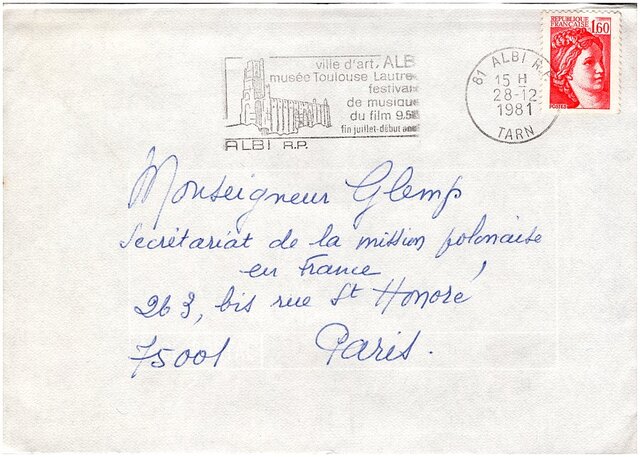 REPUBLIQUE
FRANÇAISE 1,60
POSTES
81 ALBI R.P.
15 H
28-12
1981
TARN
ville d'art. ALB
musée Toulouse Lautrec
festivals
de musique
du film 9.5
fin juillet-début août
ALBI R.P.
Monseigneur Glemp
Secrétariat de la mission polonaise
en France
263, bis rue St Honoré
75001 Paris.